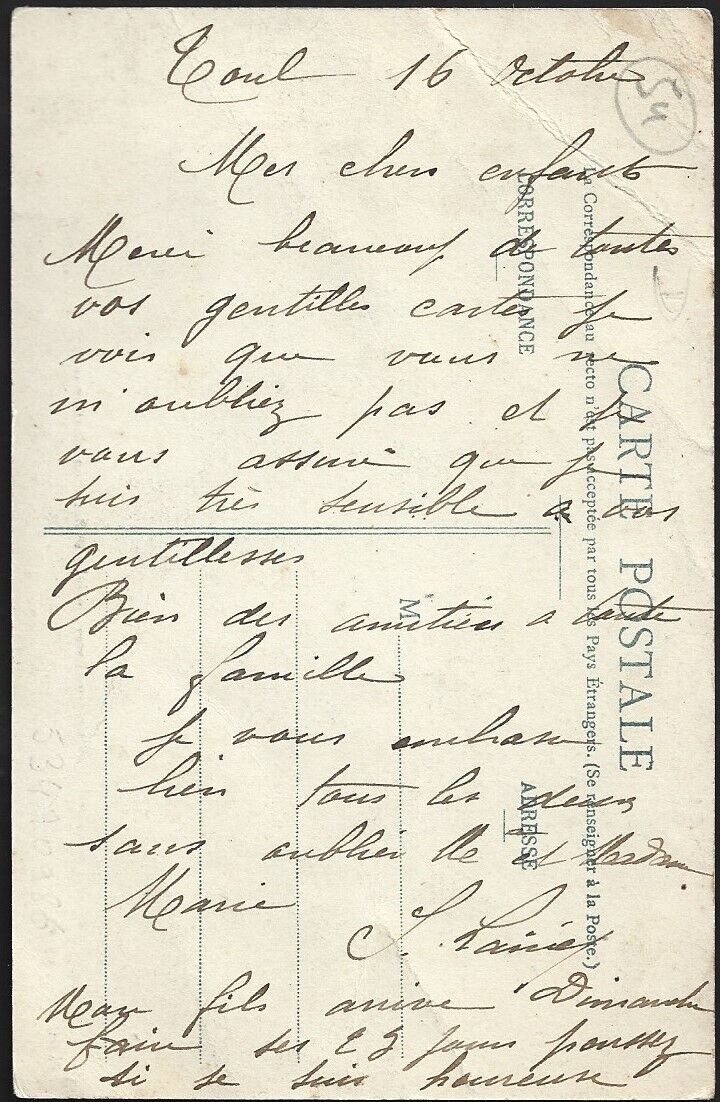 Toul 16 Octobre
54
Mes chers enfants
Merci beaucoup de toutes
vos gentilles cartes je
vois que vous ne
m'oubliez pas et je
vous assure que je
suis très sensible a vos
gentillesses
Bien des amitiés a toute
la famille
je vous embrasse
bien tous les deux
sans oublier Mr et Madame
Marie
Mon fils arrive Dimanche
faire ses 23 jours pensez
si je suis heureuse
CARTE POSTALE
La Correspondance au recto n'est pas acceptée par tous les Pays Étrangers. (Se renseigner à la Poste.)
CORRESPONDANCE
ADRESSE
M